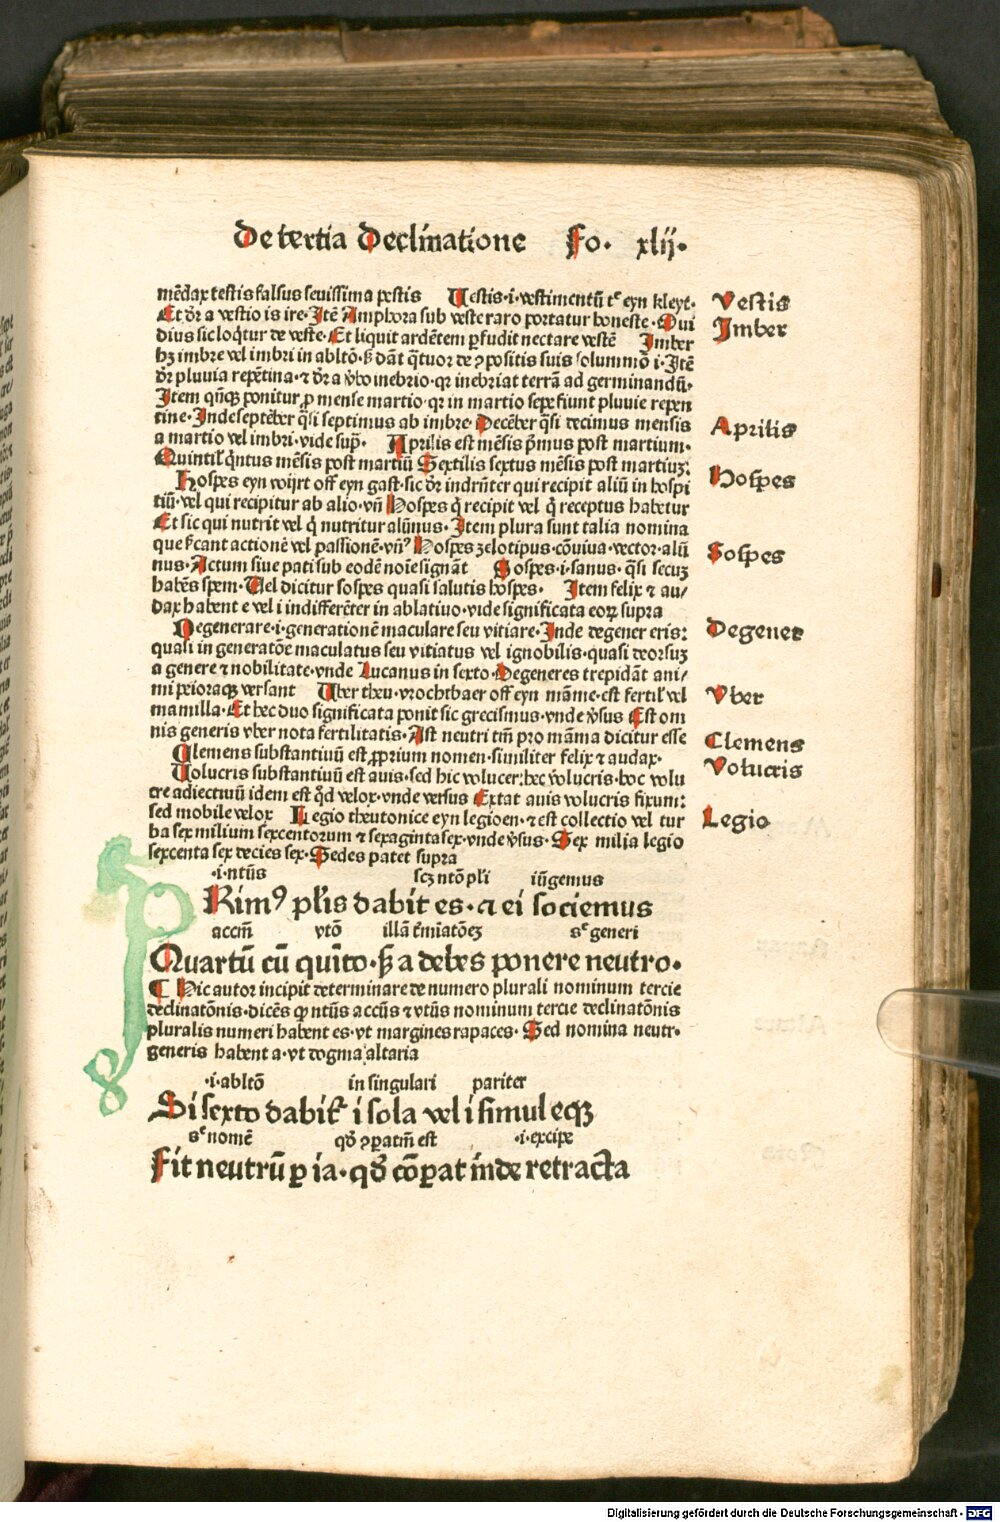 De tertia Declinatione Fo. xlij.
mēdax testis falsus seuissima pestis Uestis.i.vestimentū t͛ eyn kleyt. Vestis
Et dr̄ a vestio is ire.Itē Amphora sub veste raro portatur honeste.Oui Imber
dius sic loqtur de veste.Et liquit ardētem ꝑfudit nectare vestē Imber
hꝫ imbre vel imbri in abltō.ß dāt q̄tuor de ꝯpositis suis solummō i.Itē
dr̄ pluuia repētina.⁊ dr̄ a v̄bo inebrio.qꝛ inebriat terrā ad germinandū.
Item qn̄qꝫ ponitur ꝓ mense martio qꝛ in martio sepe fiunt pluuie repen
tine.Inde septēber q̄si septimus ab imbre.Decēber q̄si decimus mensis Aprilis
a martio vel imbri.vide sup̄. Aprilis est mēsis p̄mus post martium.
Quintil̛ q̄ntus mēsis post martiū Sextilis sextus mēsis post martiuꝫ. Hospes
Hospes eyn woijrt off eyn gast.sic dr̄ indrn̄ter qui recipit aliū in hospi
tiū.vel qui recipitur ab alio.vn̄ Hospes q̄ recipit vel q̄ receptus habetur
Et sic qui nutrit vel q̄ nutritur alūnus.Item plura sunt talia nomina
que s̄cant actionē vel passionē.vn̄ Hospes zelotipus.cōuiua.vector.alū Sospes
nus.Actum siue pati sub eodē noīe signāt Sospes.i.sanus.q̄si secuꝫ
habēs spem.Uel dicitur sospes quasi salutis hospes. Item felix ⁊ au/
dax habent e vel i indifferēter in ablatiuo.vide significata eoꝝ supra
Degenerare.i.generationē maculare seu vitiare.Inde degener eris: Degener
quasi in generatōe maculatus seu vitiatus vel ignobilis.quasi deorsuꝫ
a genere ⁊ nobilitate.vnde Lucanus in sexto.Degeneres trepidāt ani/
mi peioraqꝫ versant Uber theu.vrochtbaer off eyn māme.est fertil̛ vel Vber
mamilla.Et hec duo significata ponit sic grecismus.vnde v̄sus Est om
nis generis vber nota fertilitatis.Ast neutri tm̄ pro māma dicitur esse Clemens
Clemens substantiuū est ꝓprium nomen.similiter felix ⁊ audax.
Uolucris substantiuū est auis.sed hic volucer:hec volucris.hoc volu Volucris
cre adiectiuū idem est qd̄ velox.vnde versus Extat auis volucris fixum:
sed mobile velox Legio theutonice eyn legioen.⁊ est collectio vel tur Legio
ba sex milium sexcentorum ⁊ sexaginta sex.vnde v̄sus.Sex milia legio
sexcenta sex decies sex.Sedes patet supra
.i.ntiīs scꝫ ntō pli iūgemus
PRimꝰ pl̄is dabit es.a ei sociemus
accm̄ vtō illā t̄miatōeꝫ s͛ generi
Quartū cū quīto.ß a debes ponere neutro.
¶ Hic autor incipit determinare de numero plurali nominum tercie
declinatōnis.dicēs qꝙ ntiūs accūs ⁊ vtiūs nominum tercie declinatōnis
pluralis numeri habent es.vt margines rapaces.Sed nomina neutr.
generis habent a.vt dogma altaria
.i.abltō in singulari pariter
Si sexto dabit͛ i sola vel i simul eqꝫ
s͛ nomē qd̄ ꝯparatm̄ est .i.excipe
Fit neutrū ꝑ ia.qd̄ cōꝑat īnde retracta
Digitalisierung gefördert durch die Deutsche Forschungsgemeinschaft - DFG